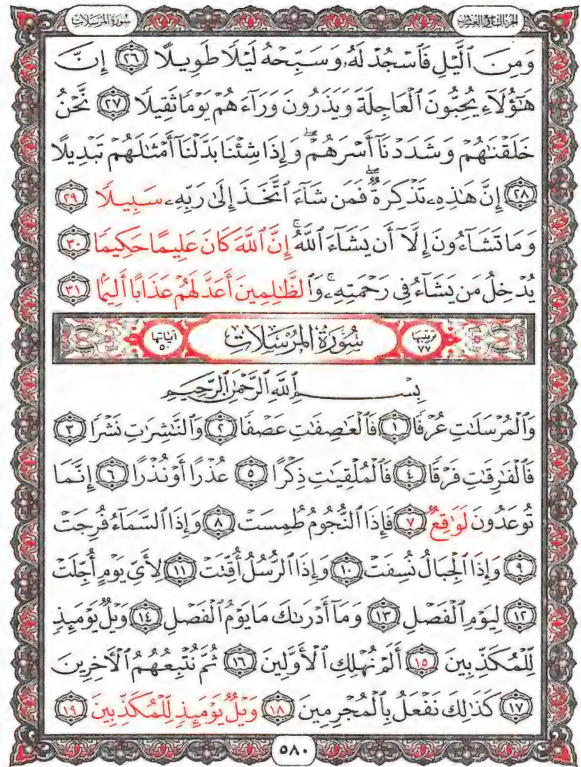 الجزء التاسع والعشرون سورة المرسلات
وَمِنَ ٱلَّيْلِ فَٱسْجُدْ لَهُۥ وَسَبِّحْهُ لَيْلًا طَوِيلًا ٢٦ إِنَّ
هَٰٓؤُلَآءِ يُحِبُّونَ ٱلْعَاجِلَةَ وَيَذَرُونَ وَرَآءَهُمْ يَوْمًا ثَقِيلًا ٢٧ نَّحْنُ
خَلَقْنَٰهُمْ وَشَدَدْنَآ أَسْرَهُمْ ۖ وَإِذَا شِئْنَا بَدَّلْنَآ أَمْثَٰلَهُمْ تَبْدِيلًا
٢٨ إِنَّ هَٰذِهِۦ تَذْكِرَةٌ ۖ فَمَن شَآءَ ٱتَّخَذَ إِلَىٰ رَبِّهِۦ سَبِيلًا ٢٩
وَمَا تَشَآءُونَ إِلَّآ أَن يَشَآءَ ٱللَّهُ ۚ إِنَّ ٱللَّهَ كَانَ عَلِيمًا حَكِيمًا ٣٠
يُدْخِلُ مَن يَشَآءُ فِى رَحْمَتِهِۦ ۚ وَٱلظَّٰلِمِينَ أَعَدَّ لَهُمْ عَذَابًا أَلِيمًۢا ٣١
ترتيبها ٧٧ سُورَةُ الْمُرْسَلَاتِ آياتها ٥٠
بِسْمِ ٱللَّهِ ٱلرَّحْمَٰنِ ٱلرَّحِيمِ
وَٱلْمُرْسَلَٰتِ عُرْفًا ١ فَٱلْعَٰصِفَٰتِ عَصْفًا ٢ وَٱلنَّٰشِرَٰتِ نَشْرًا ٣
فَٱلْفَٰرِقَٰتِ فَرْقًا ٤ فَٱلْمُلْقِيَٰتِ ذِكْرًا ٥ عُذْرًا أَوْ نُذْرًا ٦ إِنَّمَا
تُوعَدُونَ لَوَٰقِعٌ ٧ فَإِذَا ٱلنُّجُومُ طُمِسَتْ ٨ وَإِذَا ٱلسَّمَآءُ فُرِجَتْ
٩ وَإِذَا ٱلْجِبَالُ نُسِفَتْ ١٠ وَإِذَا ٱلرُّسُلُ أُقِّتَتْ ١١ لِأَىِّ يَوْمٍ أُجِّلَتْ
١٢ لِيَوْمِ ٱلْفَصْلِ ١٣ وَمَآ أَدْرَىٰكَ مَا يَوْمُ ٱلْفَصْلِ ١٤ وَيْلٌ يَوْمَئِذٍ
لِّلْمُكَذِّبِينَ ١٥ أَلَمْ نُهْلِكِ ٱلْأَوَّلِينَ ١٦ ثُمَّ نُتْبِعُهُمُ ٱلْءَاخِرِينَ
١٧ كَذَٰلِكَ نَفْعَلُ بِٱلْمُجْرِمِينَ ١٨ وَيْلٌ يَوْمَئِذٍ لِّلْمُكَذِّبِينَ ١٩
٥٨٠